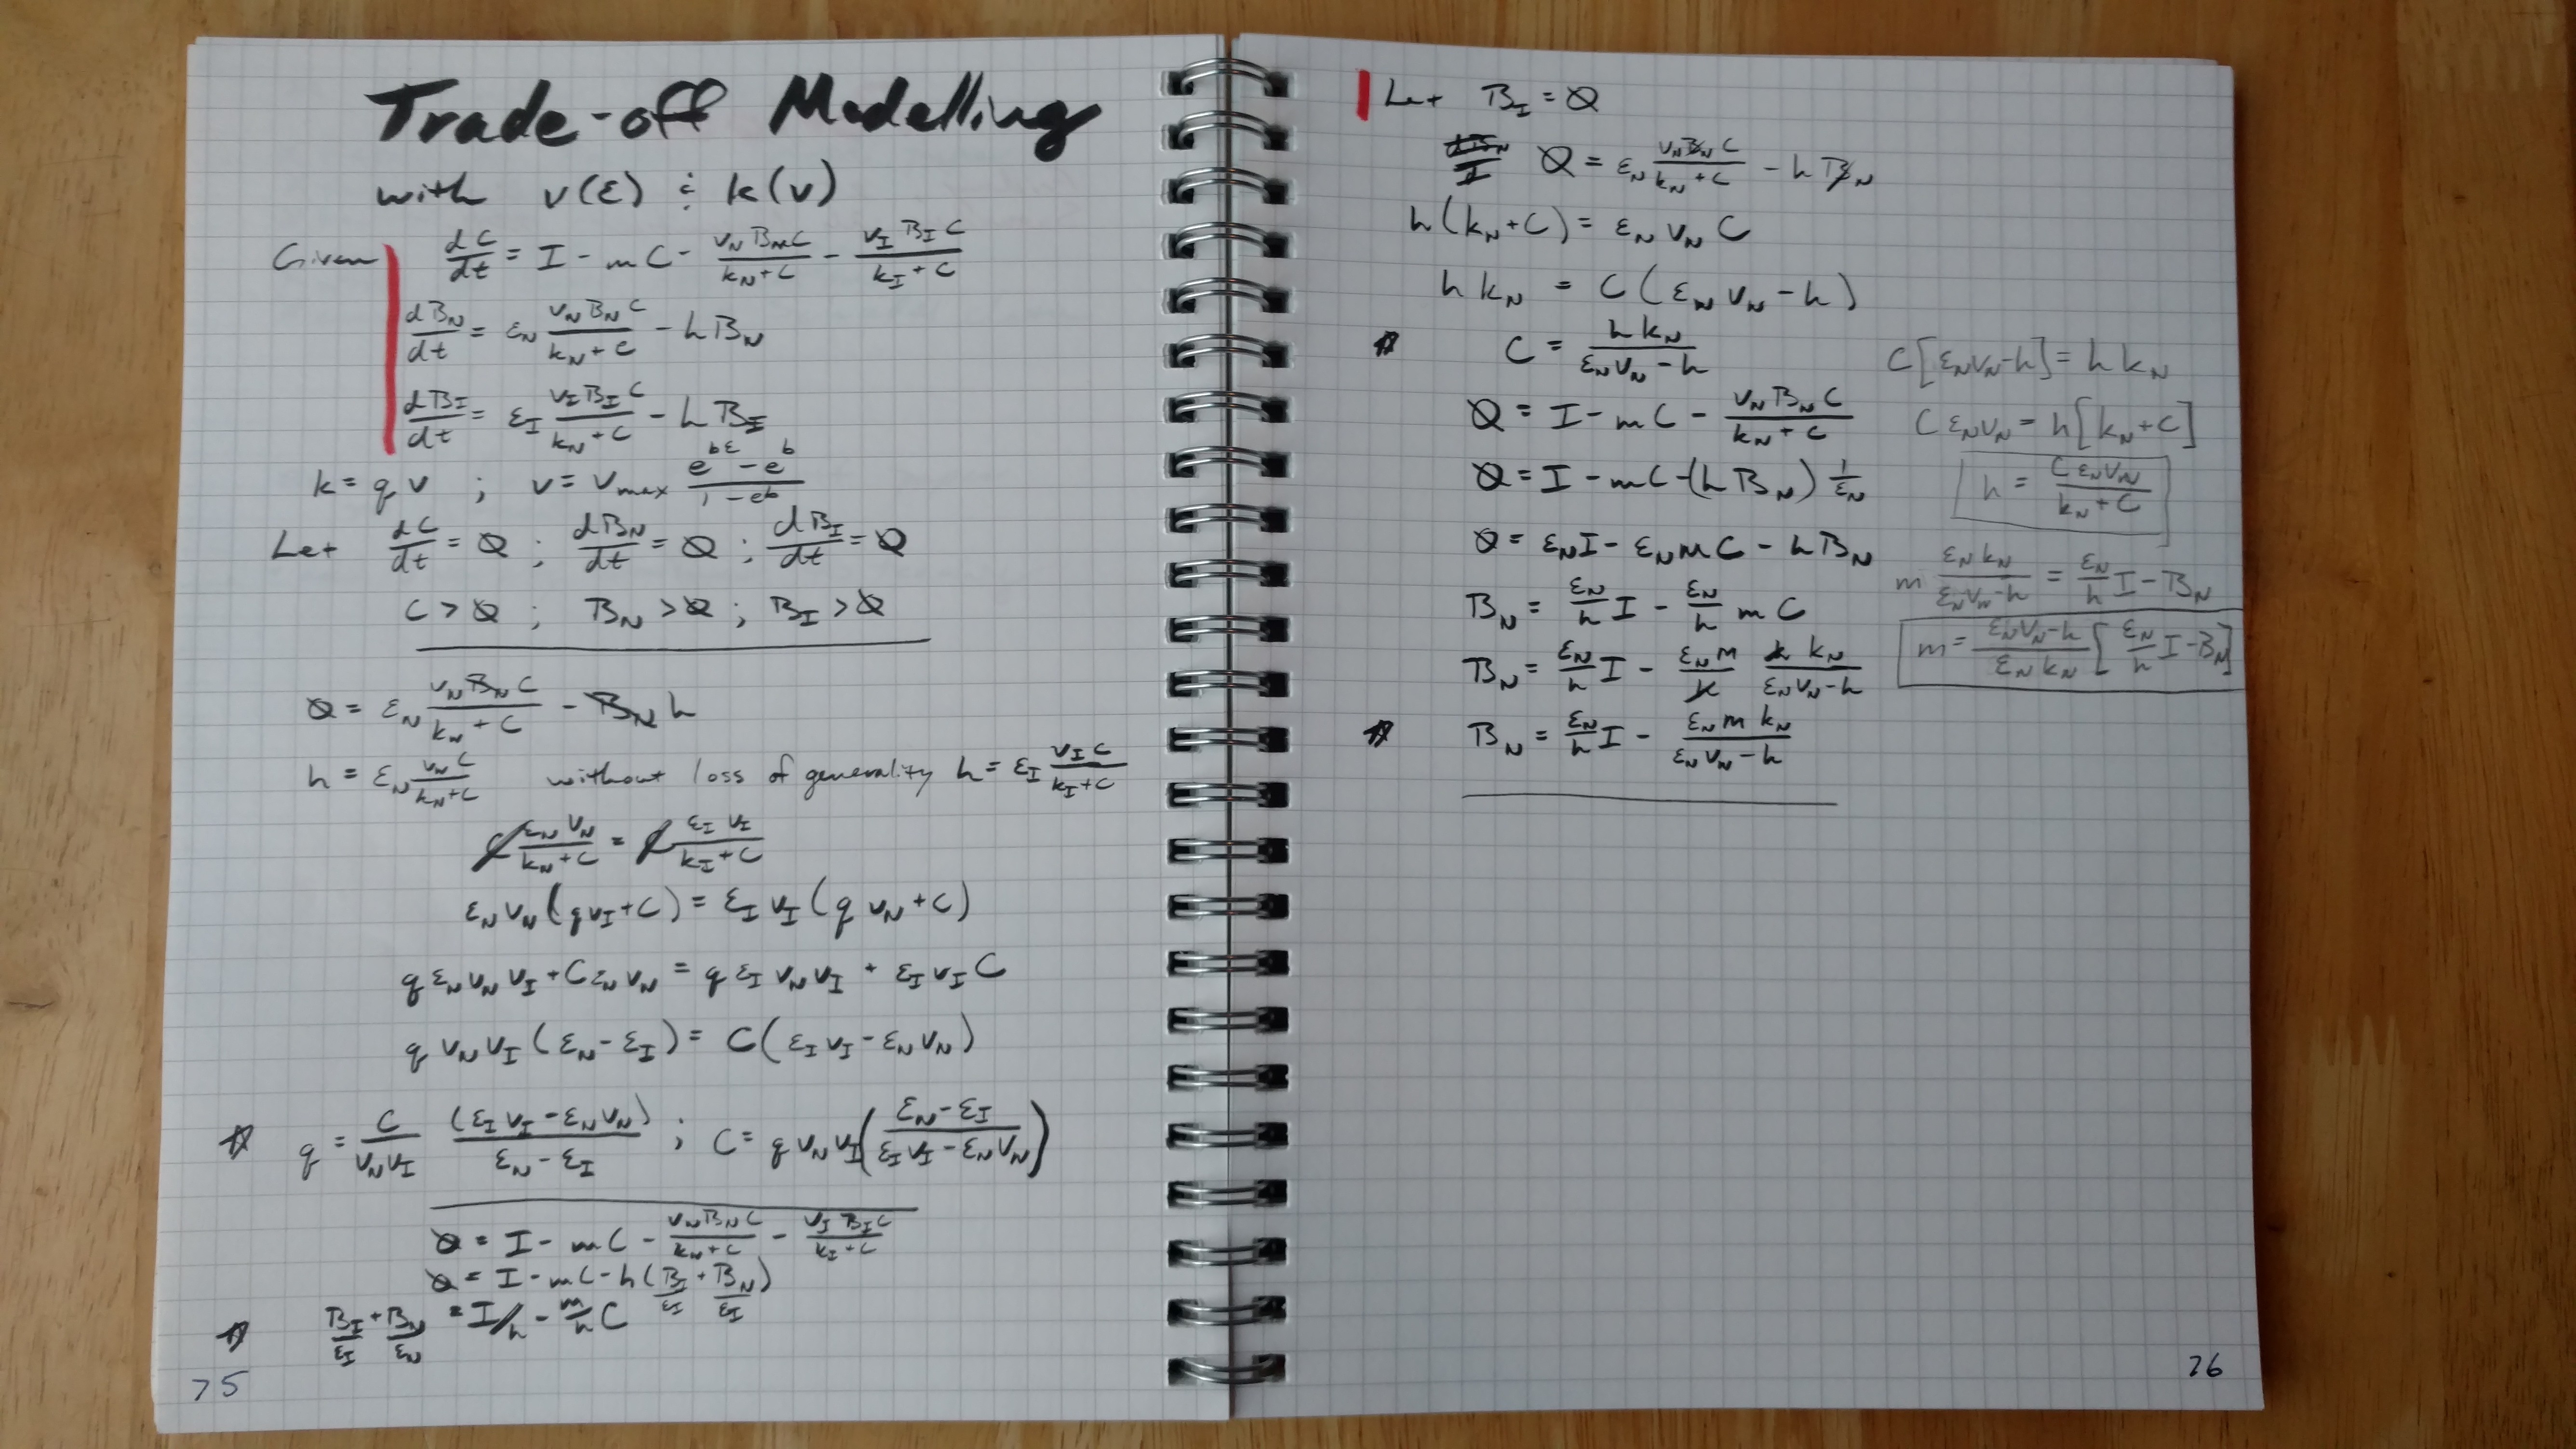 Trade-off Modelling
with v(ε) & k(v)
Given dC/dt = I - mC - v_N B_N C/(k_N + C) - v_I B_I C/(k_I + C)
dB_N/dt = ε_N v_N B_N C/(k_N + C) - h B_N
dB_I/dt = ε_I v_I B_I C/(k_N + C) - h B_I
k = q v ; v = v_max (e^{bε} - e^b)/(1 - e^b)
Let dC/dt = 0 ; dB_N/dt = 0 ; dB_I/dt = 0
C > 0 ; B_N > 0 ; B_I > 0
0 = ε_N v_N B_N C/(k_N + C) - B_N h
h = ε_N v_N C/(k_N + C) without loss of generality h = ε_I v_I C/(k_I + C)
C ε_N v_N/(k_N + C) = C ε_I v_I/(k_I + C)
ε_N v_N (q v_I + C) = ε_I v_I (q v_N + C)
q ε_N v_N v_I + C ε_N v_N = q ε_I v_N v_I + ε_I v_I C
q v_N v_I (ε_N - ε_I) = C (ε_I v_I - ε_N v_N)
☆ q = C/(v_N v_I) (ε_I v_I - ε_N v_N)/(ε_N - ε_I) ; C = q v_N v_I ((ε_N - ε_I)/(ε_I v_I - ε_N v_N))
0 = I - mC - v_N B_N C/(k_N + C) - v_I B_I C/(k_I + C)
0 = I - mC - h (B_I/ε_I + B_N/ε_I)
☆ B_I/ε_I + B_N/ε_N = I/h - m/h C
75
Let B_I = 0
0 = ε_N v_N B_N C/(k_N + C) - h B_N
h (k_N + C) = ε_N v_N C
h k_N = C (ε_N v_N - h)
☆ C = h k_N/(ε_N v_N - h)
0 = I - mC - v_N B_N C/(k_N + C)
0 = I - mC - (h B_N) 1/ε_N
0 = ε_N I - ε_N m C - h B_N
B_N = ε_N/h I - ε_N/h m C
B_N = ε_N/h I - ε_N m/h h k_N/(ε_N v_N - h)
☆ B_N = ε_N/h I - ε_N m k_N/(ε_N v_N - h)
C [ε_N v_N - h] = h k_N
C ε_N v_N = h [k_N + C]
h = C ε_N v_N/(k_N + C)
m ε_N k_N/(ε_N v_N - h) = ε_N/h I - B_N
m = (ε_N v_N - h)/(ε_N k_N) [ε_N/h I - B_N]
76